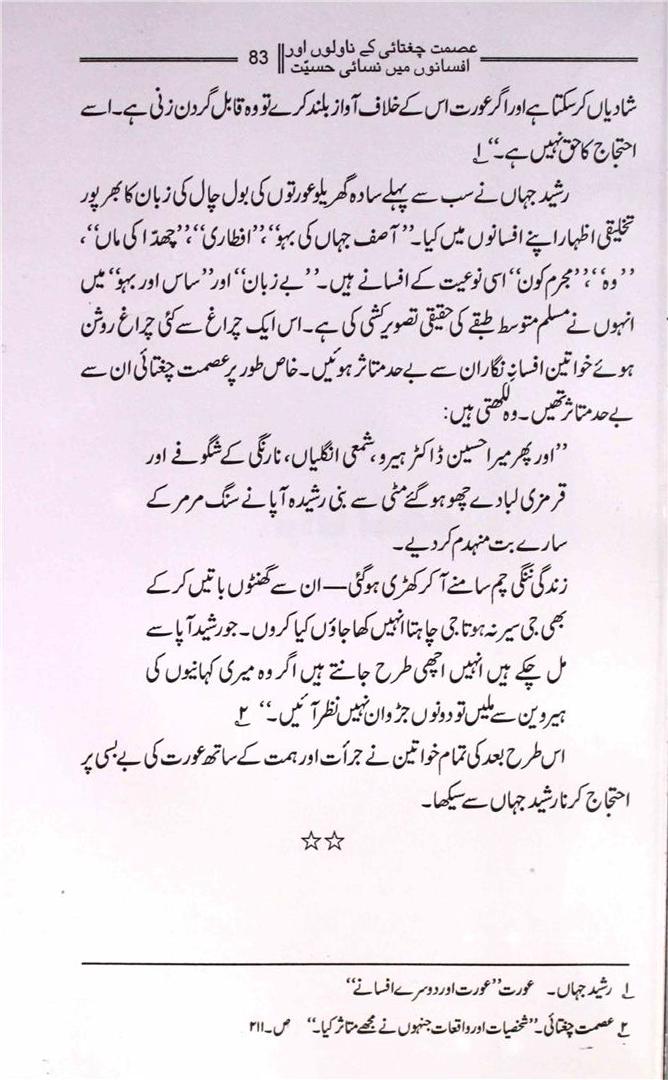 عصمت چغتائی کے ناولوں اور
افسانوں میں نسائی حسیّت
83
شادیاں کر سکتا ہے اور اگر عورت اس کے خلاف آواز بلند کرے تو وہ قابل گردن زنی ہے۔ اسے
احتجاج کا حق نہیں ہے۔‘‘ ۱
رشید جہاں نے سب سے پہلے سادہ گھریلو عورتوں کی بول چال کی زبان کا بھرپور
تخلیقی اظہار اپنے افسانوں میں کیا۔ ’’آصف جہاں کی بہو‘‘، ’’افطاری‘‘، ’’چھدّا کی ماں‘‘،
’’وہ‘‘، ’’مجرم کون‘‘ اسی نوعیت کے افسانے ہیں۔ ’’بے زبان‘‘ اور ’’ساس اور بہو‘‘ میں
انہوں نے مسلم متوسط طبقے کی حقیقی تصویر کشی کی ہے۔ اس ایک چراغ سے کئی چراغ روشن
ہوئے خواتین افسانہ نگار ان سے بے حد متاثر ہوئیں۔ خاص طور پر عصمت چغتائی ان سے
بے حد متاثر تھیں۔ وہ لکھتی ہیں:
’’اور پھر میرا حسین ڈاکٹر ہیرو، شمعی انگلیاں، نارنگی کے شگوفے اور
قرمزی لبادے چھو ہو گئے مٹی سے بنی رشیدہ آپا نے سنگ مرمر کے
سارے بت منہدم کر دیے۔
زندگی ننگی چم سامنے آ کر کھڑی ہو گئی — ان سے گھنٹوں باتیں کر کے
بھی جی سیر نہ ہوتا جی چاہتا انہیں کھا جاؤں کیا کروں۔ جو رشید آپا سے
مل چکے ہیں انہیں اچھی طرح جانتے ہیں اگر وہ میری کہانیوں کی
ہیروین سے ملیں تو دونوں جڑواں نہیں نظر آئیں۔‘‘ ۲
اس طرح بعد کی تمام خواتین نے جرأت اور ہمت کے ساتھ عورت کی بے بسی پر
احتجاج کرنا رشید جہاں سے سیکھا۔
☆☆
۱ رشید جہاں۔ عورت ’’عورت اور دوسرے افسانے‘‘
۲ عصمت چغتائی۔ ’’شخصیات اور واقعات جنہوں نے مجھے متاثر کیا۔‘‘ ص۔۲۱۱